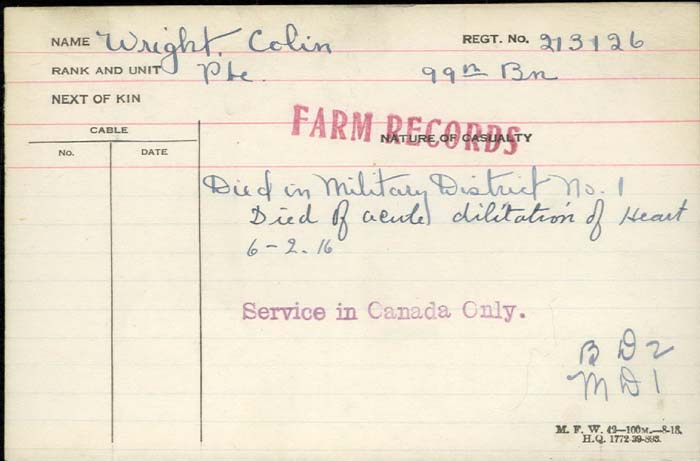 NAME Wright, Colin REGT. No. 213126
RANK AND UNIT Pte. 99th Bn
NEXT OF KIN
CABLE
FARM RECORDS
NATURE OF CASUALTY
No. DATE
Died in Military District No. 1
Died of acute dilitation of Heart
6-2.16
Service in Canada Only.
B D 2
M D 1
M. F. W. 42—100M.—8-18.
H.Q. 1772-39-893.